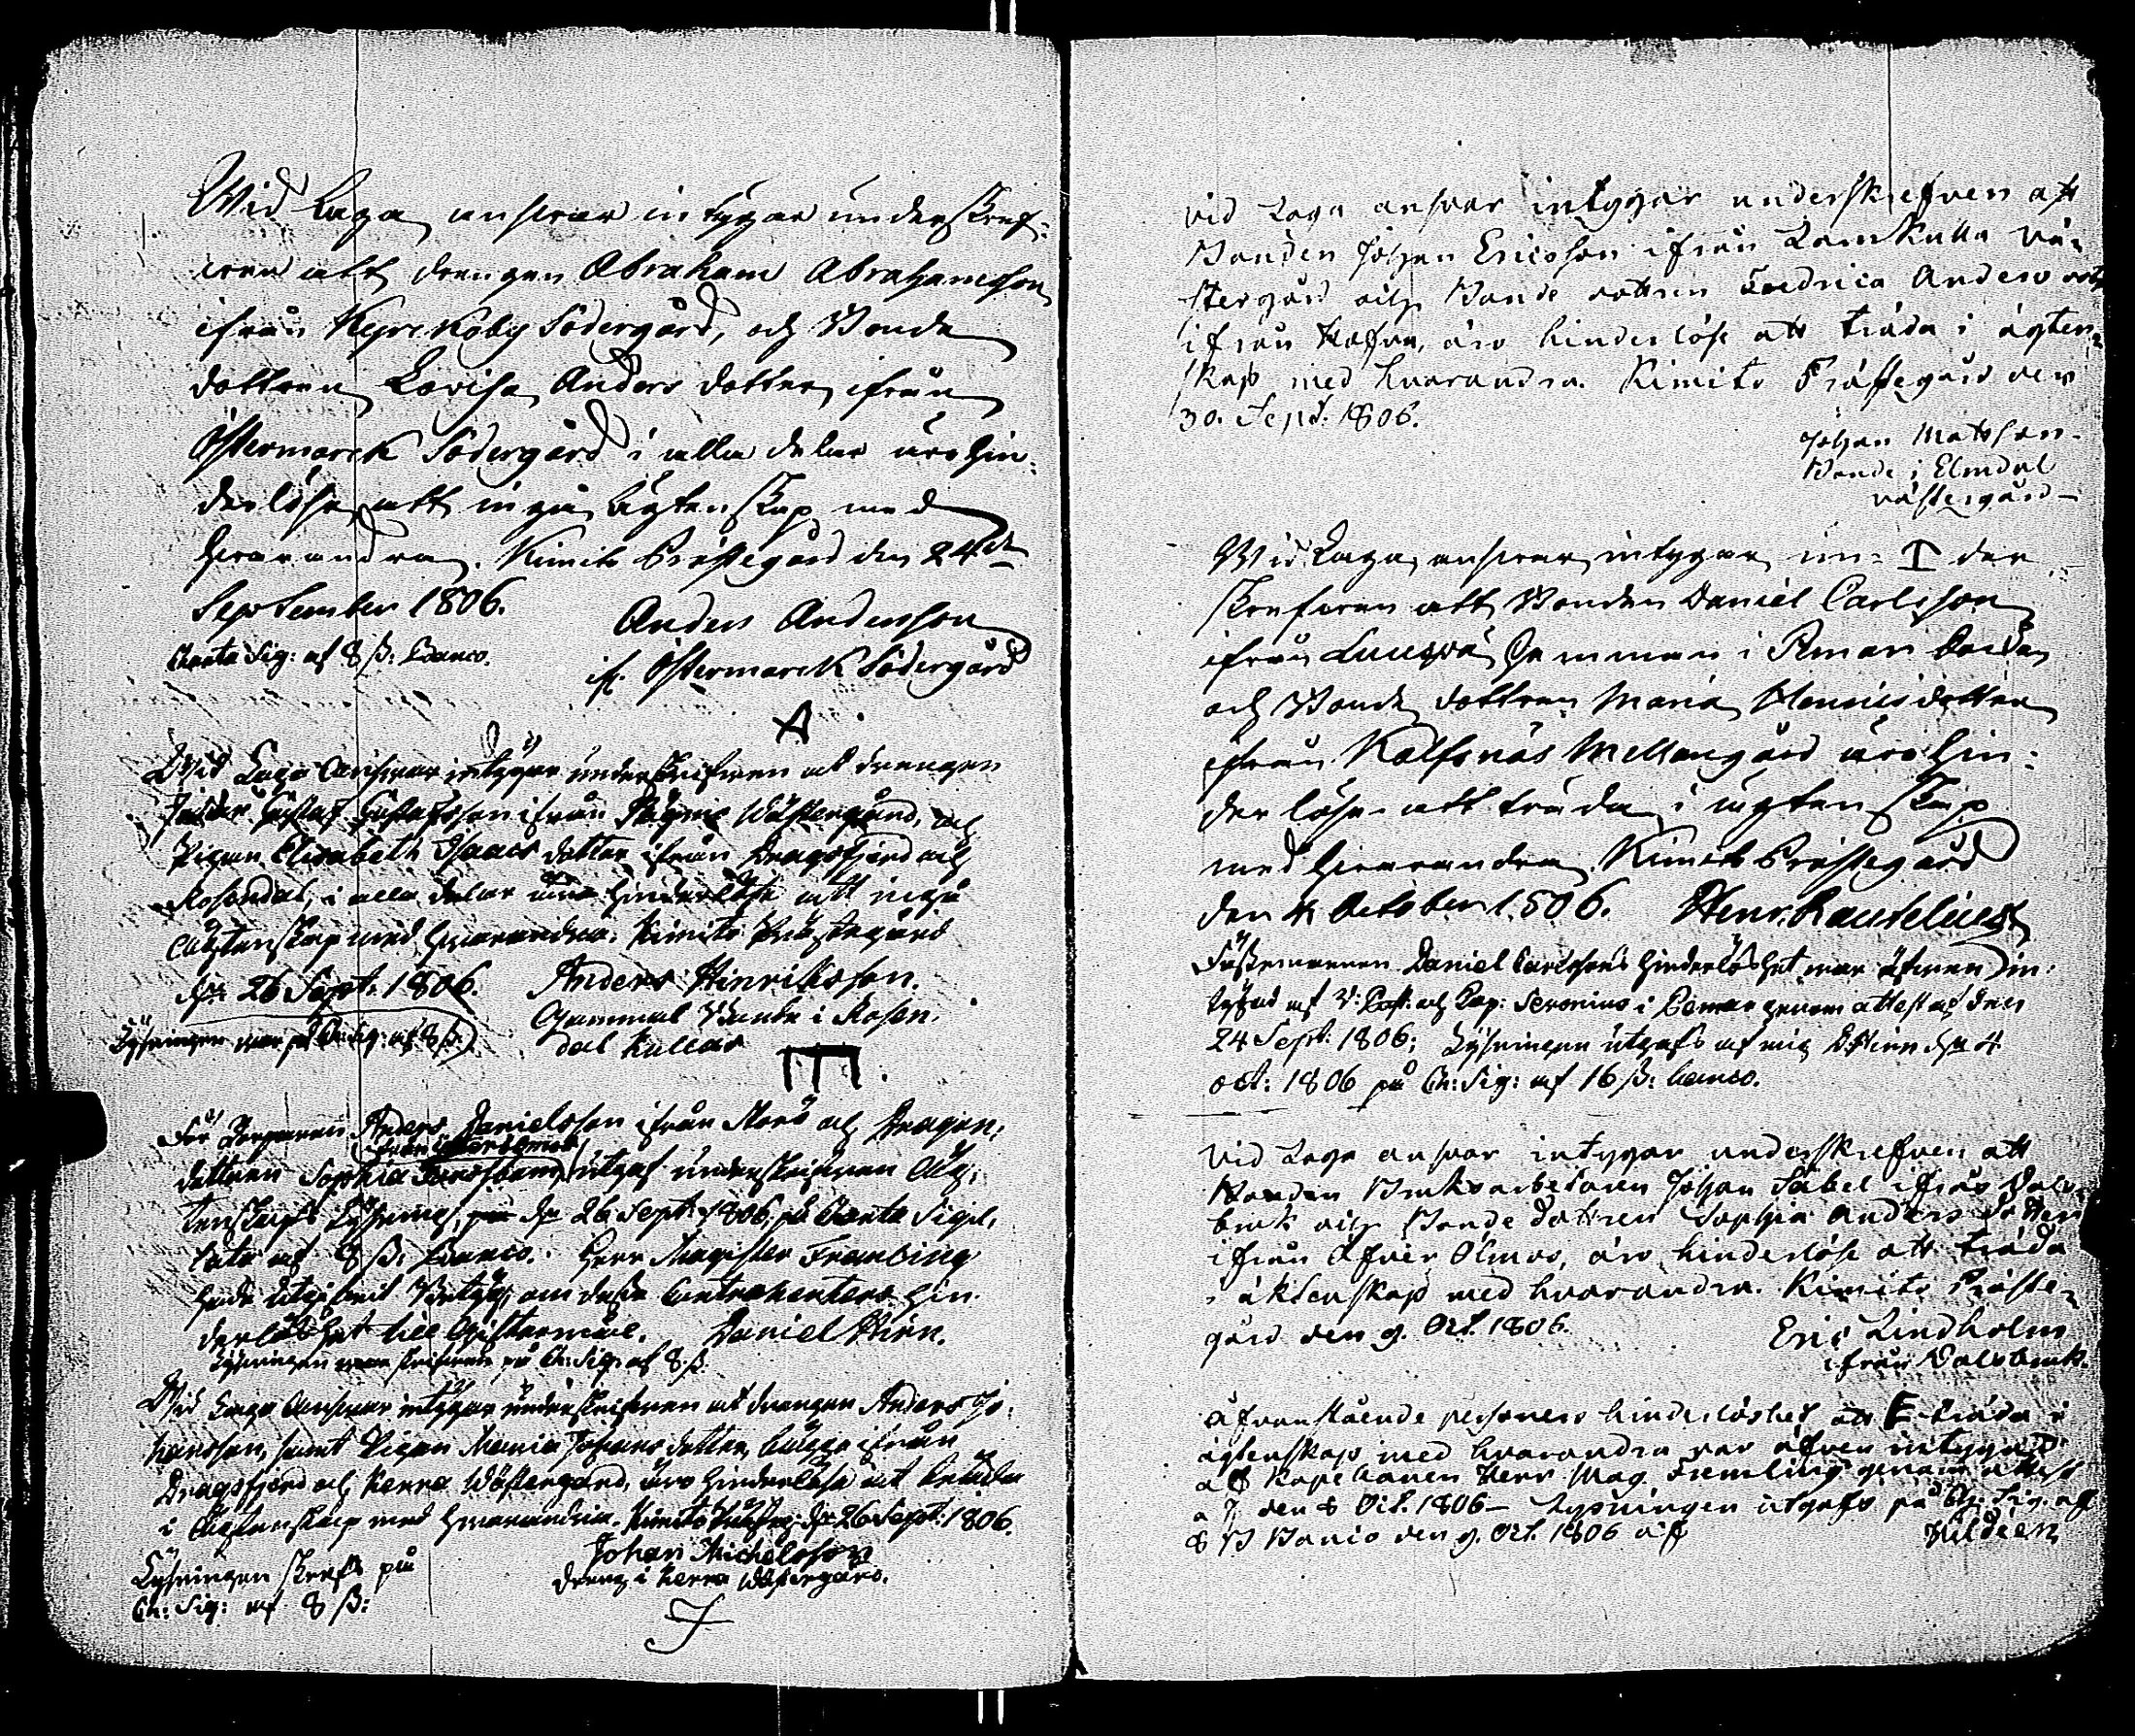 Wid Laga answar intygar underskref-
wen att drengen Abraham Abrahamsson
ifrån Kyrckoby Södergård, och Bonde
dottren Lovisa Anders dotter ifrån
Östermarck Södergård i alla delar äro hin-
derlöse att ingå Ägtenskap med
hwarandra. Kimito Prästegård den 24de
September 1806.
Anders Andersson
Charta Sig: af 8 ß: Banco.
if. Östermarck Södergård
Wid Laga Answar intygar underskrifwen at drengen
Gustaf Gustafsson ifrån Wästergård, och
Pigan Elisabeth Isaacs dotter ifrån Dragsfjerd och
Rosendal, i alla delar äro hinderlöse att ingå
Ägtenskap med hwarandra. Kimito Prästegård
den 26 Sept: 1806.
Anders Hinriksson.
Gammal Bonde i Rosen-
Lysningen war på Ch: Sig: af 8 ß:
dal Kullas
För Anders Danielsson ifrån och
dottren Sophia utgaf underskrifwen Äg-
tenskaps Lysning, den 26 Sept: 1806, på Charta Sigil-
lata af 8 ß: Banco. Herr Magister Fremling
hade utgifwit om desse Contrahenters hin-
derlöshet till Giftermål. Daniel
Lysningen war skrifwen på Ch: Sig: af 8 ß.
Wid Laga Answar intygar underskrifwen at drengen Anders Jo-
hansson, samt Pigan Maria Johans dotter, bägge ifrån
Dragsfjerd och Kerra Wästergård, äro hinderlöse at träda
i Ägtenskap med hwarandra. Kimito den 26 Sept: 1806.
Johan Michelsson
Lysningen skrefs på
dreng i Kerra Wästergård.
Ch: Sig: af 8 ß:
vid Laga answar intygar underskrefven att
Bonden Johan Ericsson ifrån Lamkulla vä-
stergård och Bonde dottren Fredrica Anders dotr
ifrån äro hinderlöse att träda i ägten-
skap med hvarandra. Kimito Prästegård den
30. Sept. 1806.
Johan Matsson.
Bonde i Elmdal
västergård
Wid Laga answar intygar un- der
skrefwen att Bonden Daniel Carlsson
ifrån i Pemar Socken
och Bonde dottren Maria Henrics dotter
ifrån Kalfsnäs Mellangård äro hin-
der löse att träda i ägtenskap
med hwarandra. Kimito Prästegård
den 4 October 1806. Henr. Rautelius
Fästemannen Daniel Carlssons hinderlöshet war äfwen in-
tygad af V: Past: och Cap: Seronius i Pemar genom attest af den
24 Sept: 1806; Lysningen utgafs af mig den 4
oct: 1806 på Ch: Sig: af 16 ß: banco.
vid Laga answar intygar underskrefven att
Bruksarbetaren Johan Sabel ifrån Dals-
bruk och Bonde dottren Sophia Anders dotter
ifrån Öfver Ölmos, äro hinderlöse att träda
i äktenskap med hvarandra. Kimito Präste-
gård den 9. Oct. 1806.
Eric Lindholm
ifrån Dalsbruk.
ofvanstående personers hinderlöshet att träda i
ägtenskap med hvarandra var äfven intygad
af Kapellanen Herr Mag. Fremling genom attest
af den 8 Oct. 1806 – Lysningen utgafs på Ch: Sig. af
8 ß Banco den 9. Oct. 1806 af